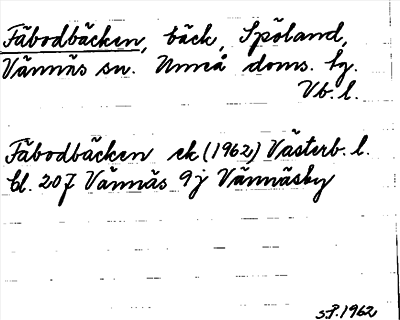 Fäbodbäcken, bäck, Spöland,
Vännäs sn. Umeå doms. tg.
Vb. l.
Fäbodbäcken ek (1962) Västerb. l.
bl. 207 Vännäs 9j Vännäsby
S.P. 1962